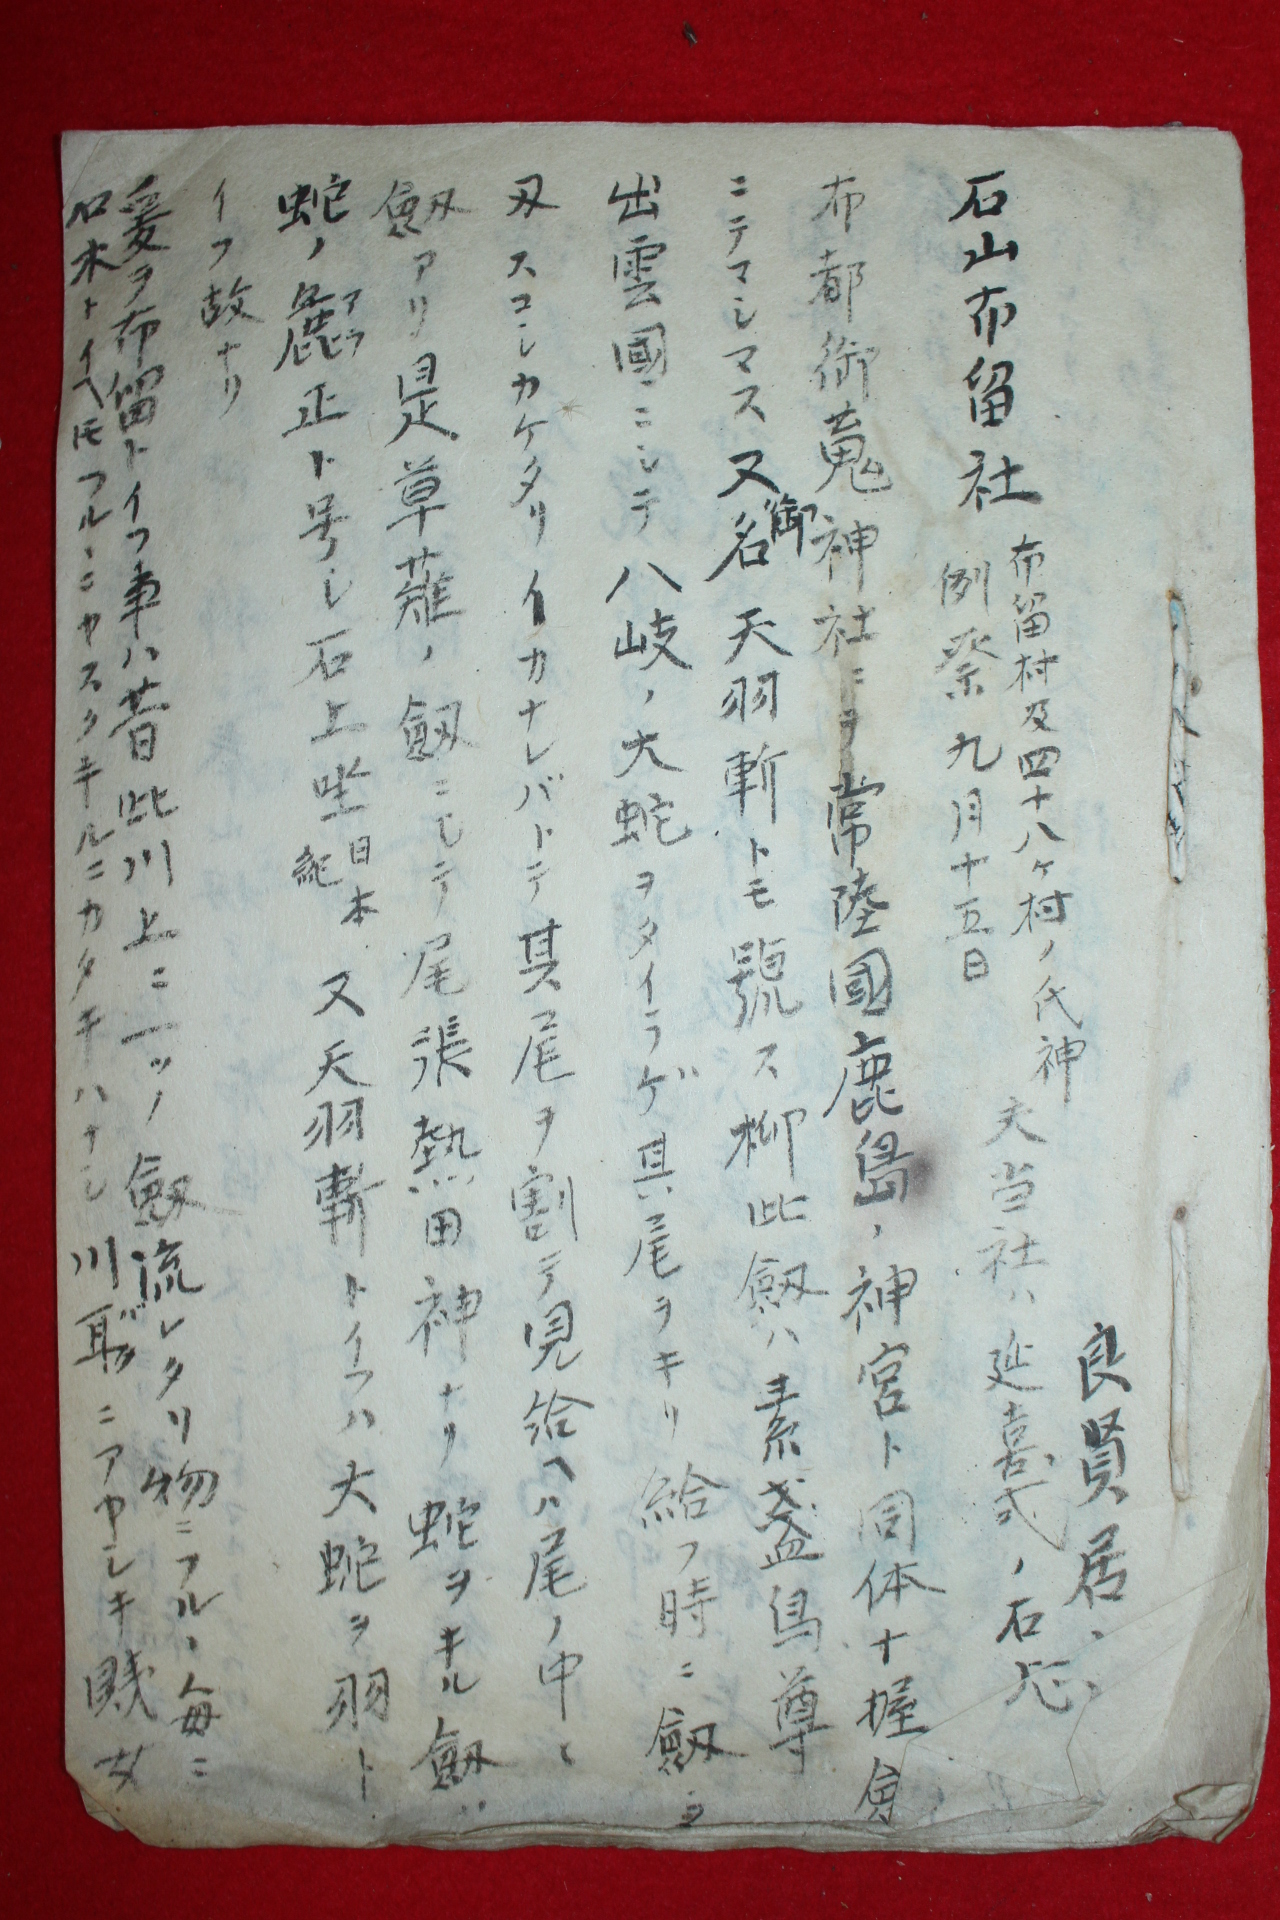 良賢居
石山布留社 布留村及四十八ヶ村ノ氏神
例祭九月十五日 夫当社ハ延喜式ノ石
布都御䰟神社ニヲ常陸國鹿島ノ神宮ト同体ナ握
ニテマシマス又御名天羽斬トモ號ス 此劔ハ素盞烏尊
出雲國ニシテ八岐ノ大蛇ヲタイラゲ其尾ヲキリ給フ時ニ劔ヲ
刄スコシカケタリイカナレバトテ其尾ヲ割テ見給ヘハ尾ノ中ニ
劔アリ是草薙ノ劔ニシテ尾張熱田神ナリ蛇ヲキル劔
蛇ノ麁アラ正ト号シ石上坐日本紀又天羽斬トイフハ大蛇ヲ羽ト
イフ故ナリ
爰ヲ布留トイフ事ハ昔此川上ニ一ツノ劔流レタリ物ニフルヽ毎ニ
石木トイヘ𪜈フルヽニヤスクキルニカタキハナシ川 ニアヤシキ賎女